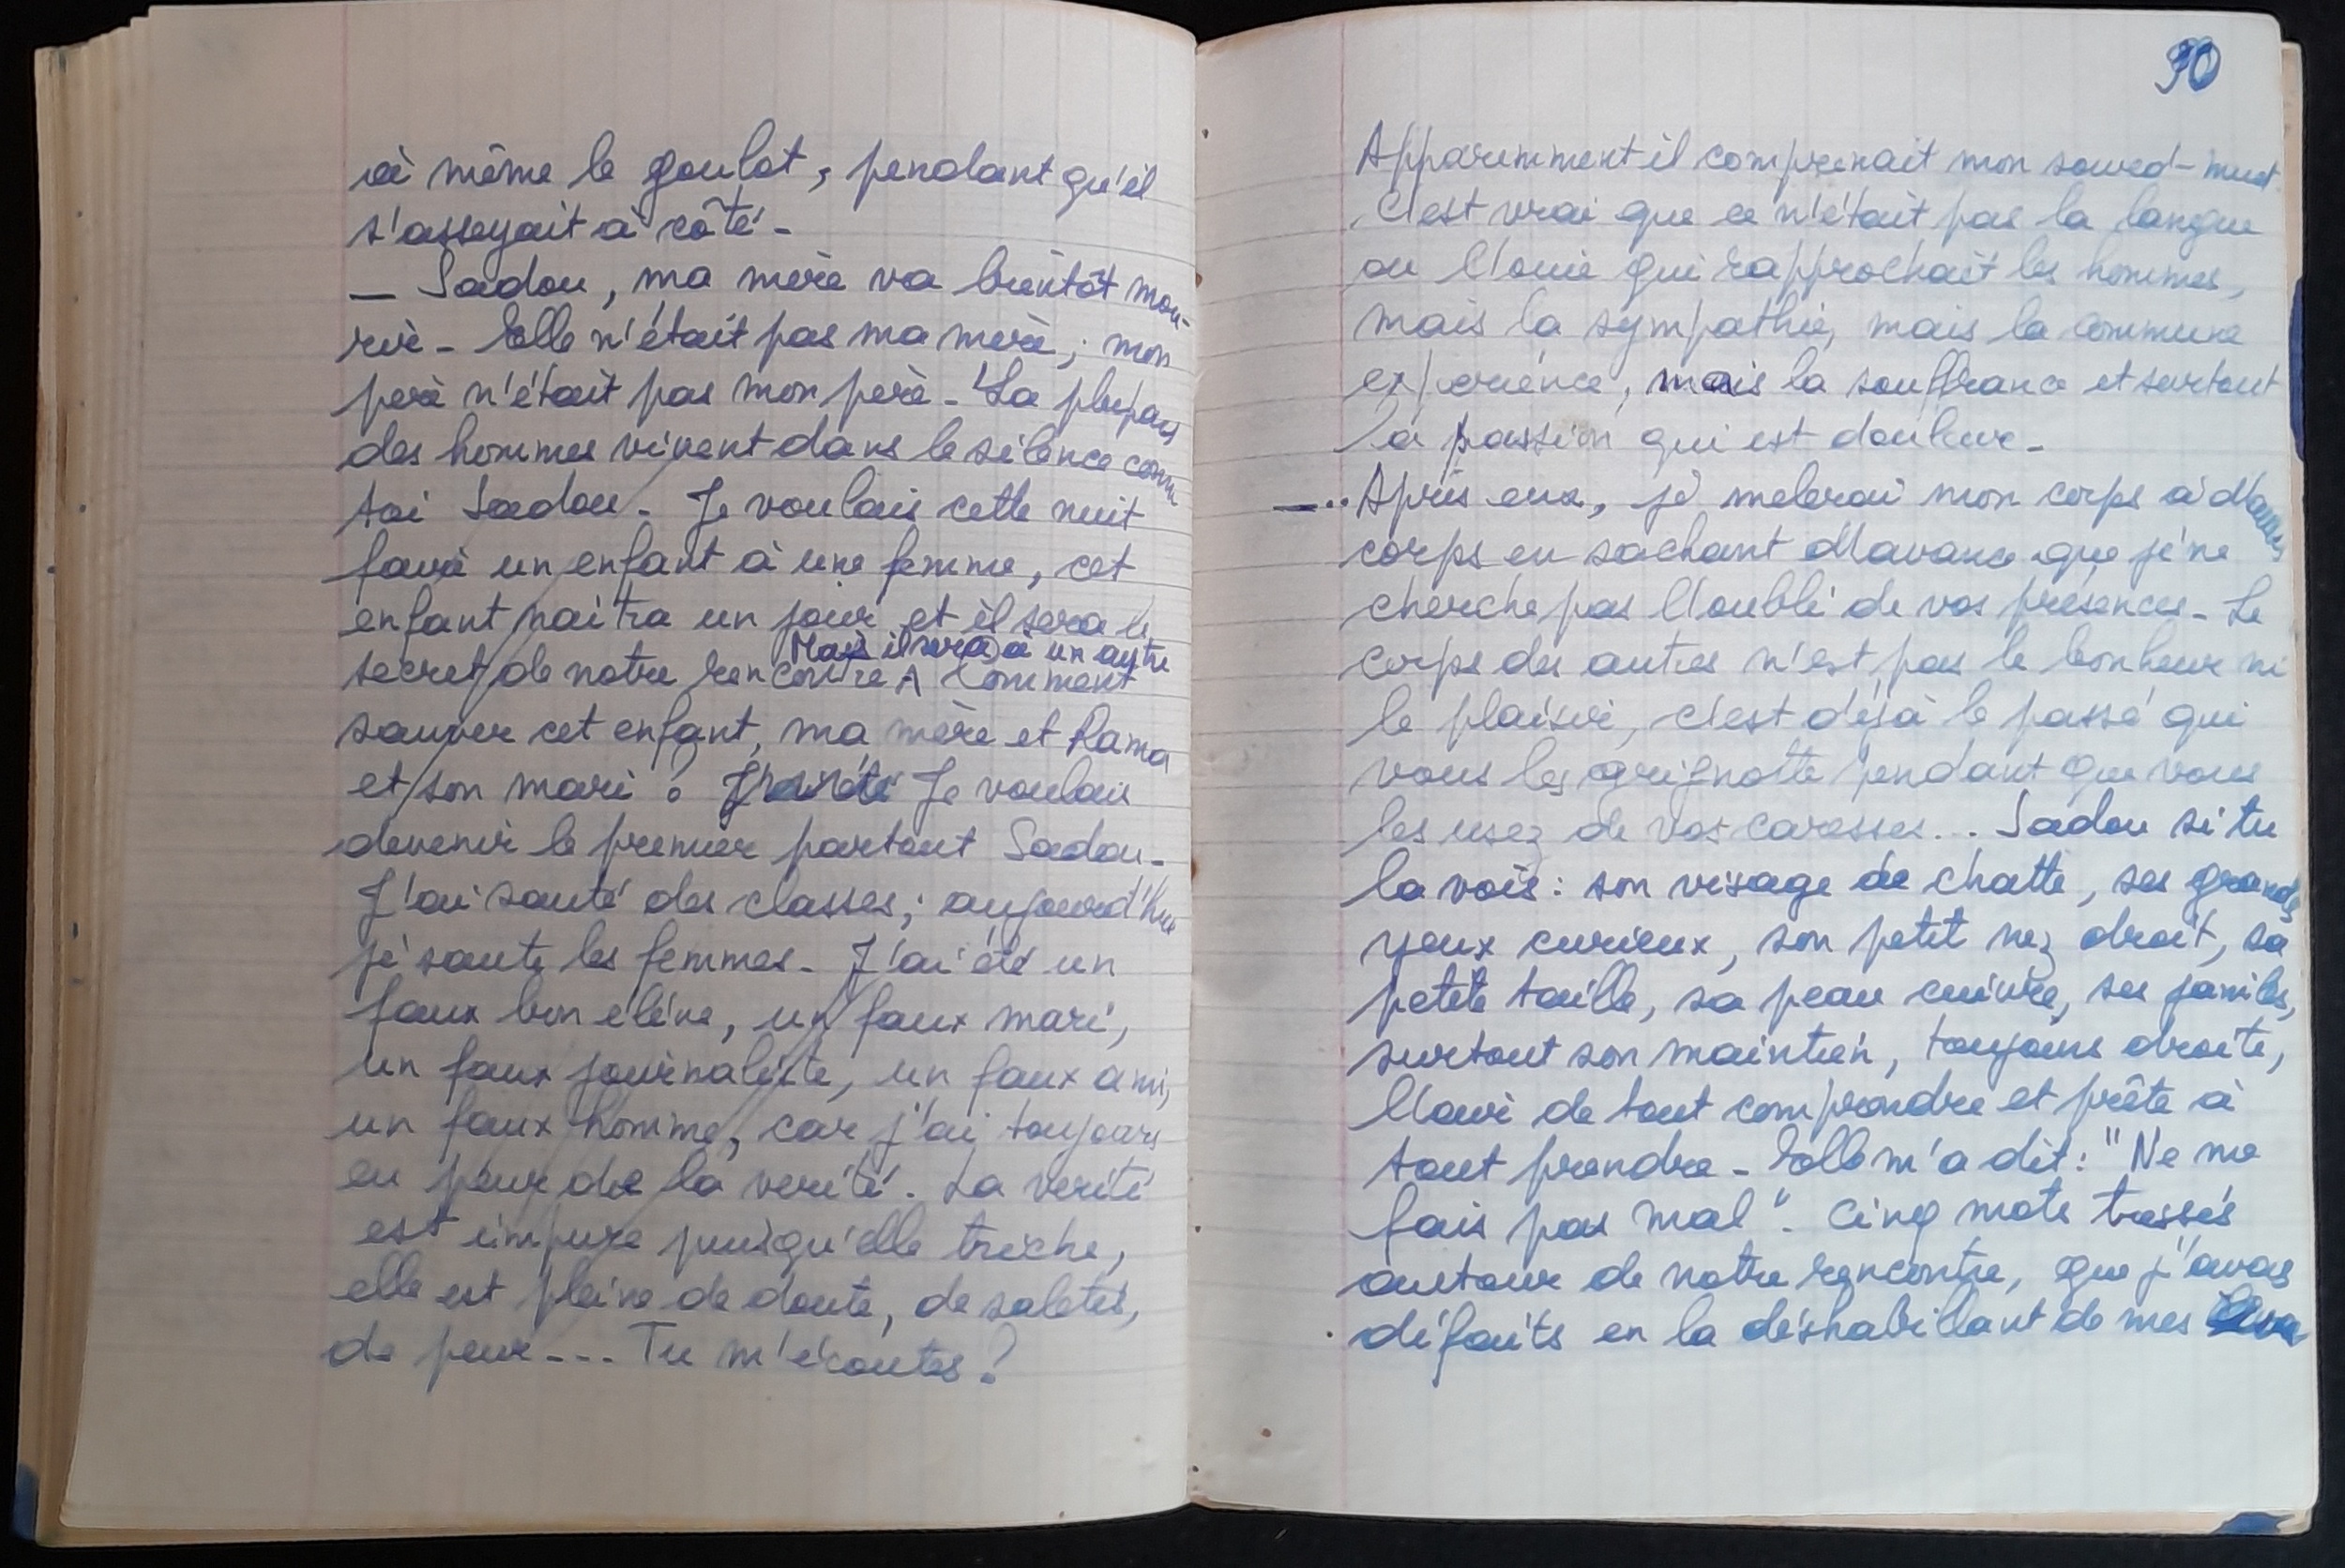 à même le goulot, pendant qu'il
s'asseyait à côté -
— Sadou, ma mère va bientôt mou-
rir - Elle n'était pas ma mère ; mon
père n'était pas mon père - La plupart
des hommes vivent dans le silence comme
toi Sadou - Je voulais cette nuit
faire un enfant à une femme, cet
enfant naitra un jour et il sera le
Mais il sera à un autre
secret de notre rencontre Comment
sauver cet enfant, ma mère et Rama
et son mari ? Je voulais
devenir le premier partout Sadou -
J'ai sauté des classes ; aujourd'hui
je saute les femmes - J'ai été un
faux bon élève, un faux mari,
un faux journaliste, un faux ami,
un faux homme, car j'ai toujours
eu peur de la verité. La verité
est impure puisqu'elle triche,
elle est pleine de doute, de saletés,
de peur --- Tu m'écoutes ?
90
Apparemment il comprenait mon sourd-muet
C'est vrai que ce n'était pas la langue
ou l'ouie qui rapprochait les hommes,
mais la sympathie, mais la commune
expérience, mais la souffrance et surtout
la passion qui est douleur -
— .. Après eux, je melerai mon corps à d'autres
corps en sachant d'avance que je ne
cherche pas l'oubli de vos présences - Le
corps des autres n'est pas le bonheur ni
le plaisir, c'est déjà le passé qui
vous les grignotte pendant que vous
les usez de vos caresses... Sadou si tu
la vois : son visage de chatte, ses grands
yeux curieux, son petit nez droit, sa
petite taille, sa peau cuivre, ses jambes,
surtout son maintien, toujours droite,
l'air de tout comprendre et prête à
tout prendre - Elle m'a dit : "Ne me
fais pas mal". Cinq mots tressés
autour de notre rencontre, que j'avais
défaits en la déshabillant de mes